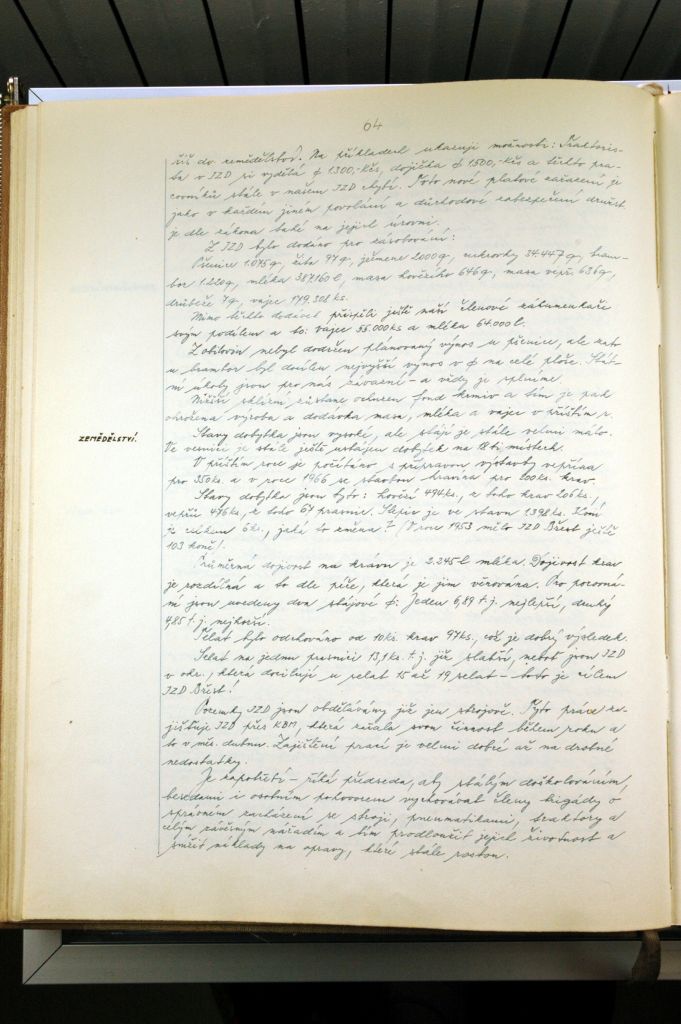 64
šiš do zemědělství. Na příkladech ukazuji možnosti: Traktoris-
ta v JZD si vydělá φ 1300,-Kčs, dojička φ 1500,-Kčs a těchto pra-
covníků stále v našem JZD chybí. Toto nové platové zařazení je
jako v každém jiném povolání a důchodové zabezpečení družst.
je dle zákona také na jejich úrovni.
Z JZD bylo dodáno pro zásobování:
Pšenice 1.075q, žita 97q, ječmene 2000q, cukrovky 34.447q, bram-
bor 1.220q, mléka 387.160 l, masa hovězího 646q, masa vepř. 636q,
drůbeže 7q, vajec 179.308 ks.
Mimo těchto dodávek přispěli ještě naši členové záhumenkáři
svým podílem a to: vajec 55.000 ks a mléka 64.000 l.
Z obilovin nebyl dodržen plánovaný výnos u pšenice, ale zato
u brambor byl docílen nejvyšší výnos v φ na celé ploše. Stát-
ní úkoly jsou pro nás závazné – a vždy je splníme.
Nižší sklizní zůstane ochuzen fond krmiv a tím je pak
ohrožena výroba a dodávka masa, mléka a vajec v příštím r.
ZEMĚDĚLSTVÍ.
Stavy dobytka jsou vysoké, ale stájí je stále velmi málo.
Ve vesnici je stále ještě ustájen dobytek na 18ti místech.
V příštím roce je počítáno s přípravou výstavby vepřína
pro 350ks. a v roce 1966 se stavbou kravína pro 200ks. krav.
Stavy dobytka jsou tyto: hovězí 494ks., z toho krav 206ks.,
vepři 476ks., z toho 67 prasnic. Slepic je ve stavu 1398ks. Koní
je celkem 6ks., jaká to změna? (V roce 1953 mělo JZD Břest ještě
103 koně).
Průměrná dojivost na krávu je 2.245 l mléka. Dojivost krav
je rozdílná a to dle péče, která je jim věnována. Pro porovná-
ní jsou uvedeny dva stájové φ: Jeden 6,89 t.j. nejlepší, druhý
4,85 t.j. nejhorší.
Telat bylo odchováno od 10ks. krav 97ks., což je dobrý výsledek.
Selat na jednu prasnici 13,1ks. t.j. již slabší, neboť jsou JZD
v okr., která docilují u selat 15 až 19 selat – toto je cílem
JZD Břest!
Pozemky JZD jsou obdělávány již jen strojově. Tyto práce za-
jišťuje JZD přes KBM, která začala svou činnost během roku a
to v měs. dubnu. Zajištění prací je velmi dobré až na drobné
nedostatky.
Je zapotřebí – říká předseda, aby stálým doškolováním,
besedami i osobním pohovorem vychovávat členy brigády o
správném zacházení se stroji, pneumatikami, traktory a
celým závěsným nářadím a tím prodloužit jejich životnost a
snížit náklady na opravy, které stále rostou.